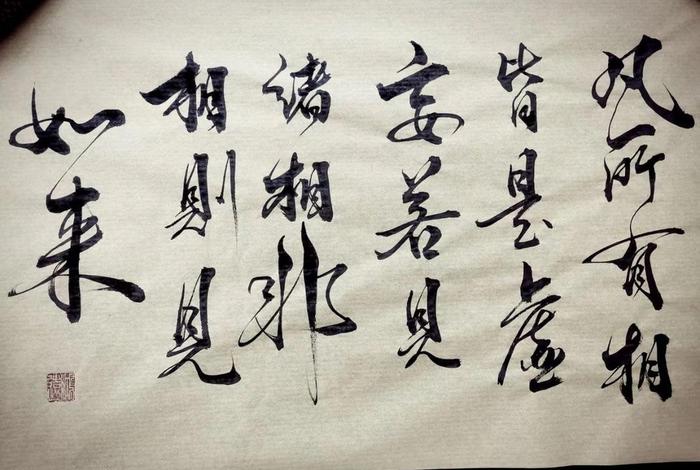 凡所有相
皆是虚
妄若见
诸相非
相则见
如来